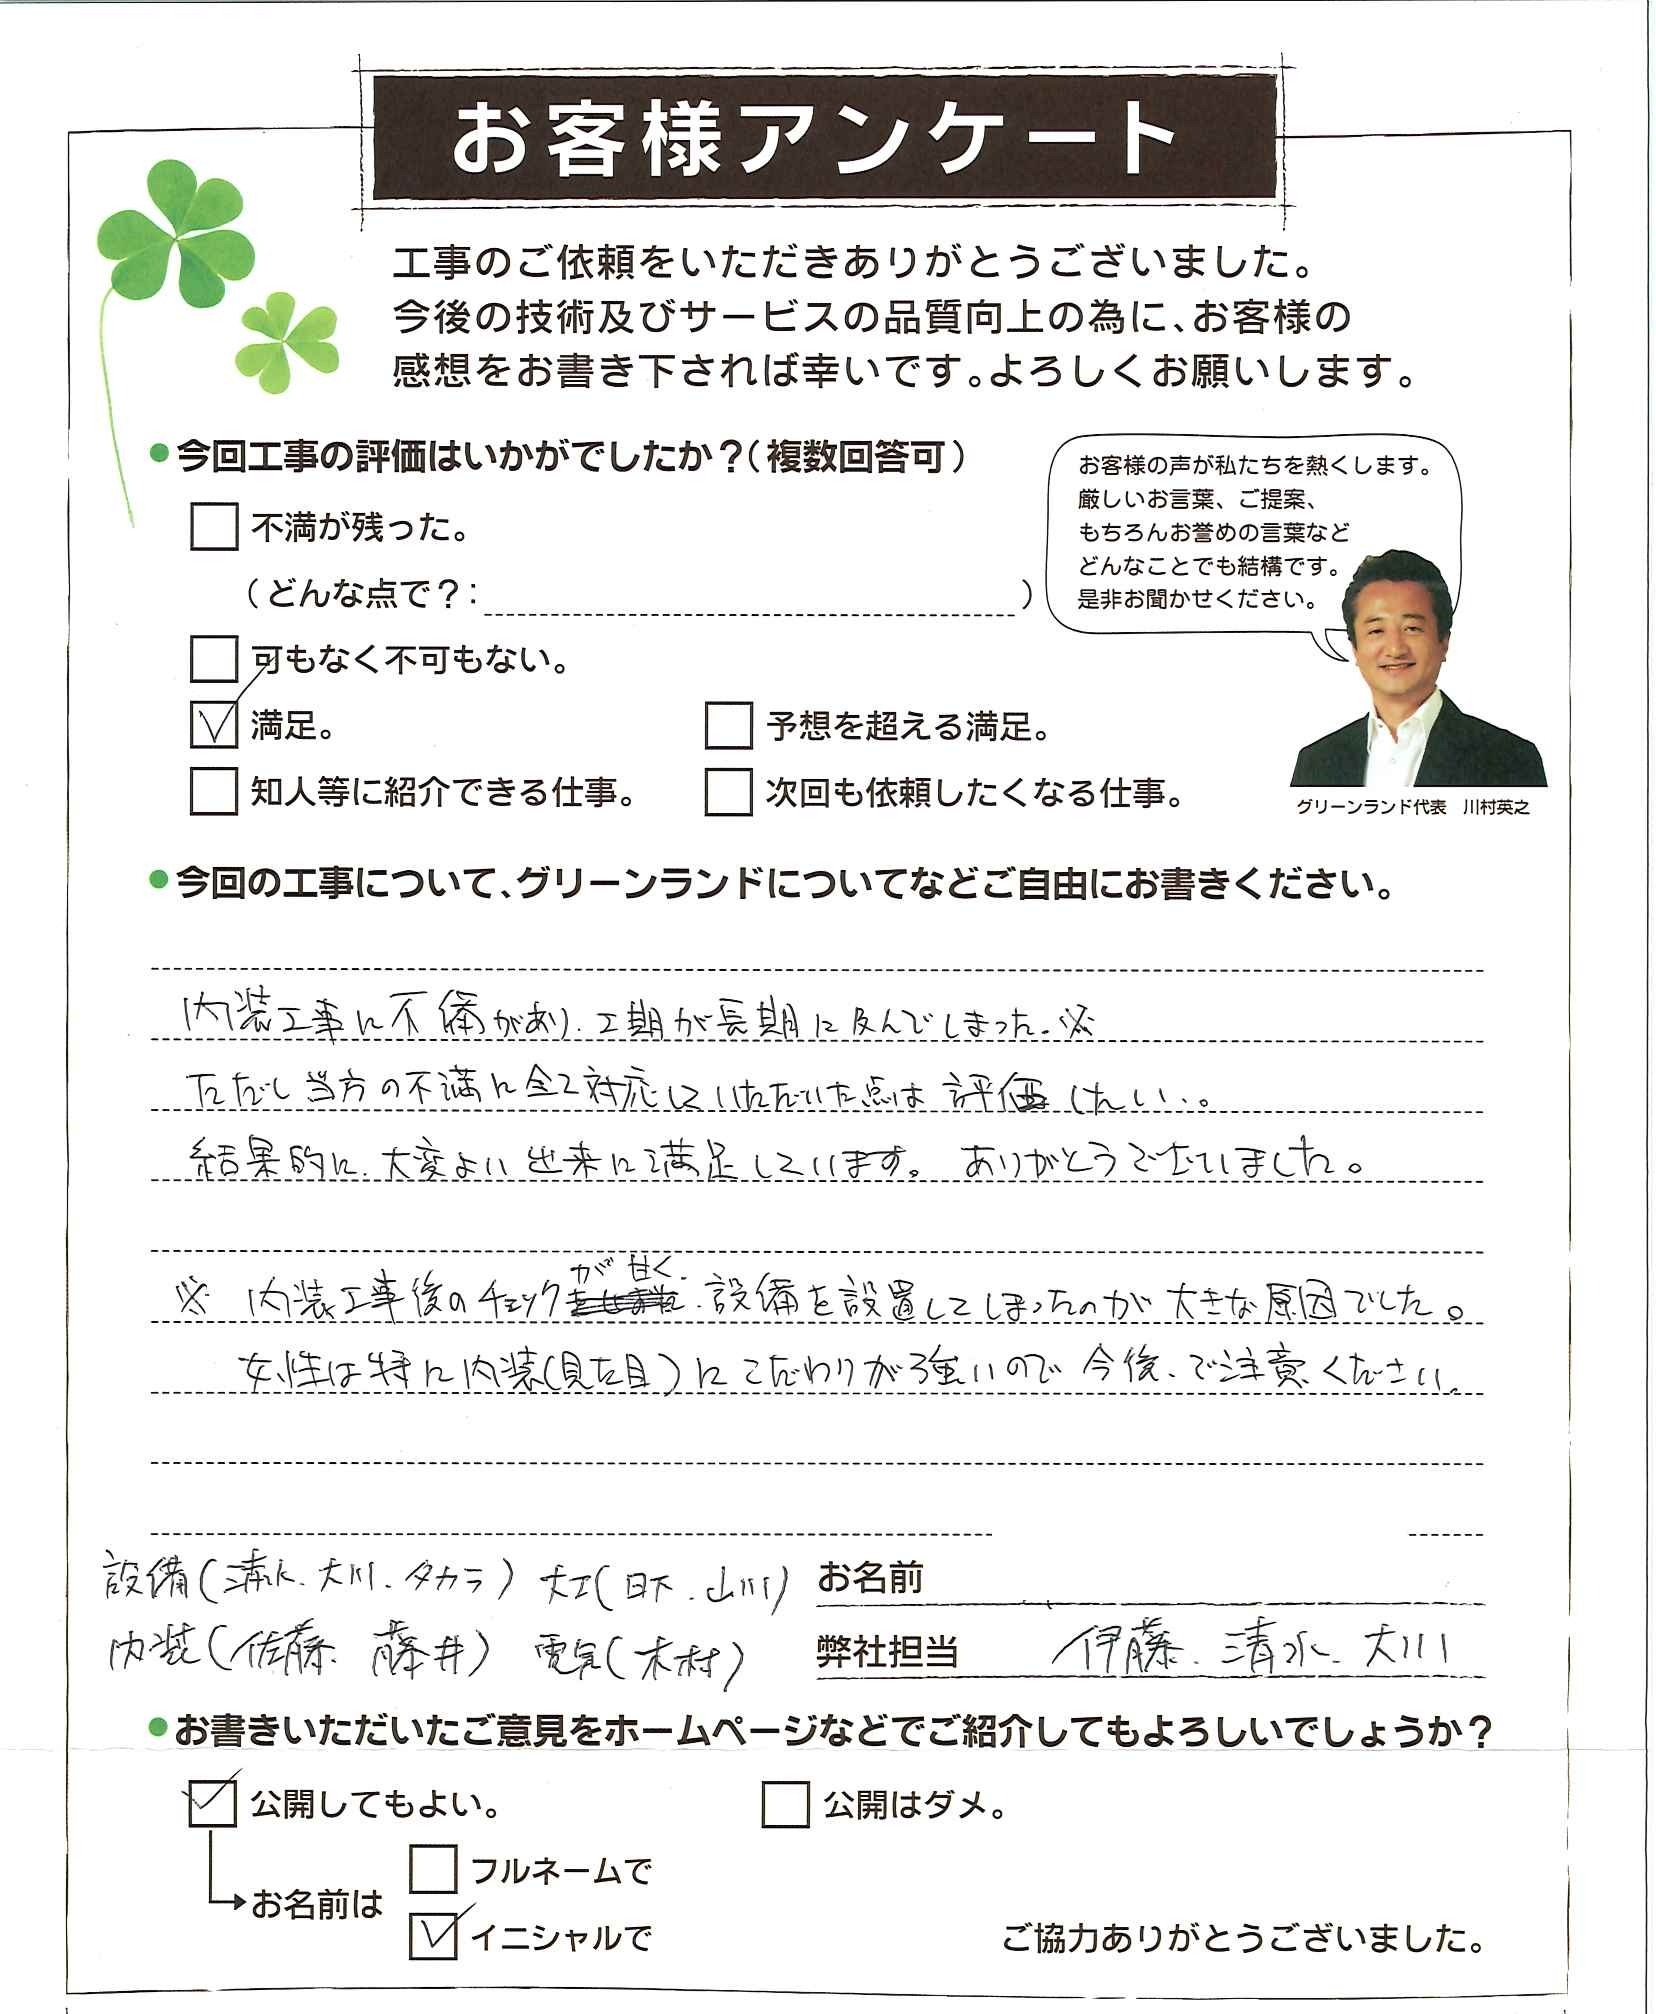 お客様アンケート
工事のご依頼をいただきありがとうございました。
今後の技術及びサービスの品質向上の為に、お客様の
感想をお書き下されば幸いです。よろしくお願いします。
●今回工事の評価はいかがでしたか？（複数回答可）
不満が残った。
（どんな点で？：　　　）
可もなく不可もない。
満足。
予想を超える満足。
知人等に紹介できる仕事。
次回も依頼したくなる仕事。
お客様の声が私たちを熱くします。
厳しいお言葉、ご提案、
もちろんお誉めの言葉など
どんなことでも結構です。
是非お聞かせください。
グリーンランド代表　川村英之
●今回の工事について、グリーンランドについてなどご自由にお書きください。
内装工事に不備があり、工期が長期に及んでしまった。※
ただし当方の不満に全て対応していただいた点は評価したい。
結果的に、大変よい出来に満足しています。ありがとうございました。
※ 内装工事後のチェックが甘く、設備を設置してしまったのが大きな原因でした。
女性は特に内装（見た目）にこだわりが強いので今後、ご注意ください。
設備（清水、大川、タカラ）大工（日下、山川）
内装（佐藤、藤井）電気（木村）
お名前
弊社担当　伊藤、清水、大川
●お書きいただいたご意見をホームページなどでご紹介してもよろしいでしょうか？
公開してもよい。
公開はダメ。
お名前は
フルネームで
イニシャルで
ご協力ありがとうございました。